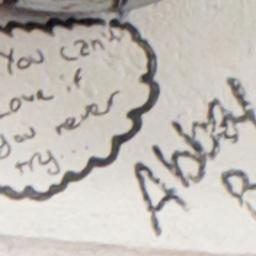 You can't
Love if
you never
try...
Abby
R